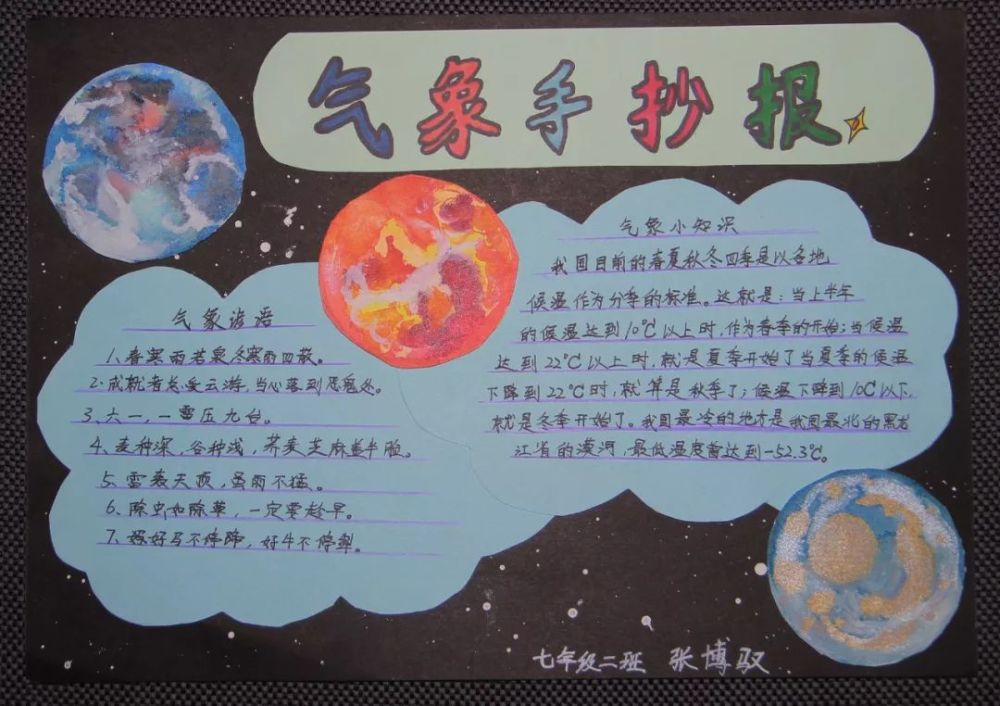 气象手抄报
气象谚语
1、春寒雨若泉,冬寒雨四散。
2、成就者总爱云游,当心落到恶鬼处。
3、六一,一雷压九台。
4、麦种深,谷种浅,荞麦芝麻盖半脸。
5、雷轰天顶,虽雨不猛。
6、除虫如除草,一定要趁早。
7、好马不停蹄,好牛不停犁。
气象小知识
我国目前的春夏秋冬四季是以各地
候温作为分季的标准。这就是:当上半年
的候温达到10℃以上时,作为春季的开始;当候温
达到22℃以上时,就是夏季开始了当夏季的候温
下降到22℃时,就算是秋季了;候温下降到10C以下,
就是冬季开始了。我国最冷的地方是我国最北的黑龙
江省的漠河,最低温度曾达到-52.3℃。
七年级二班 张博驭